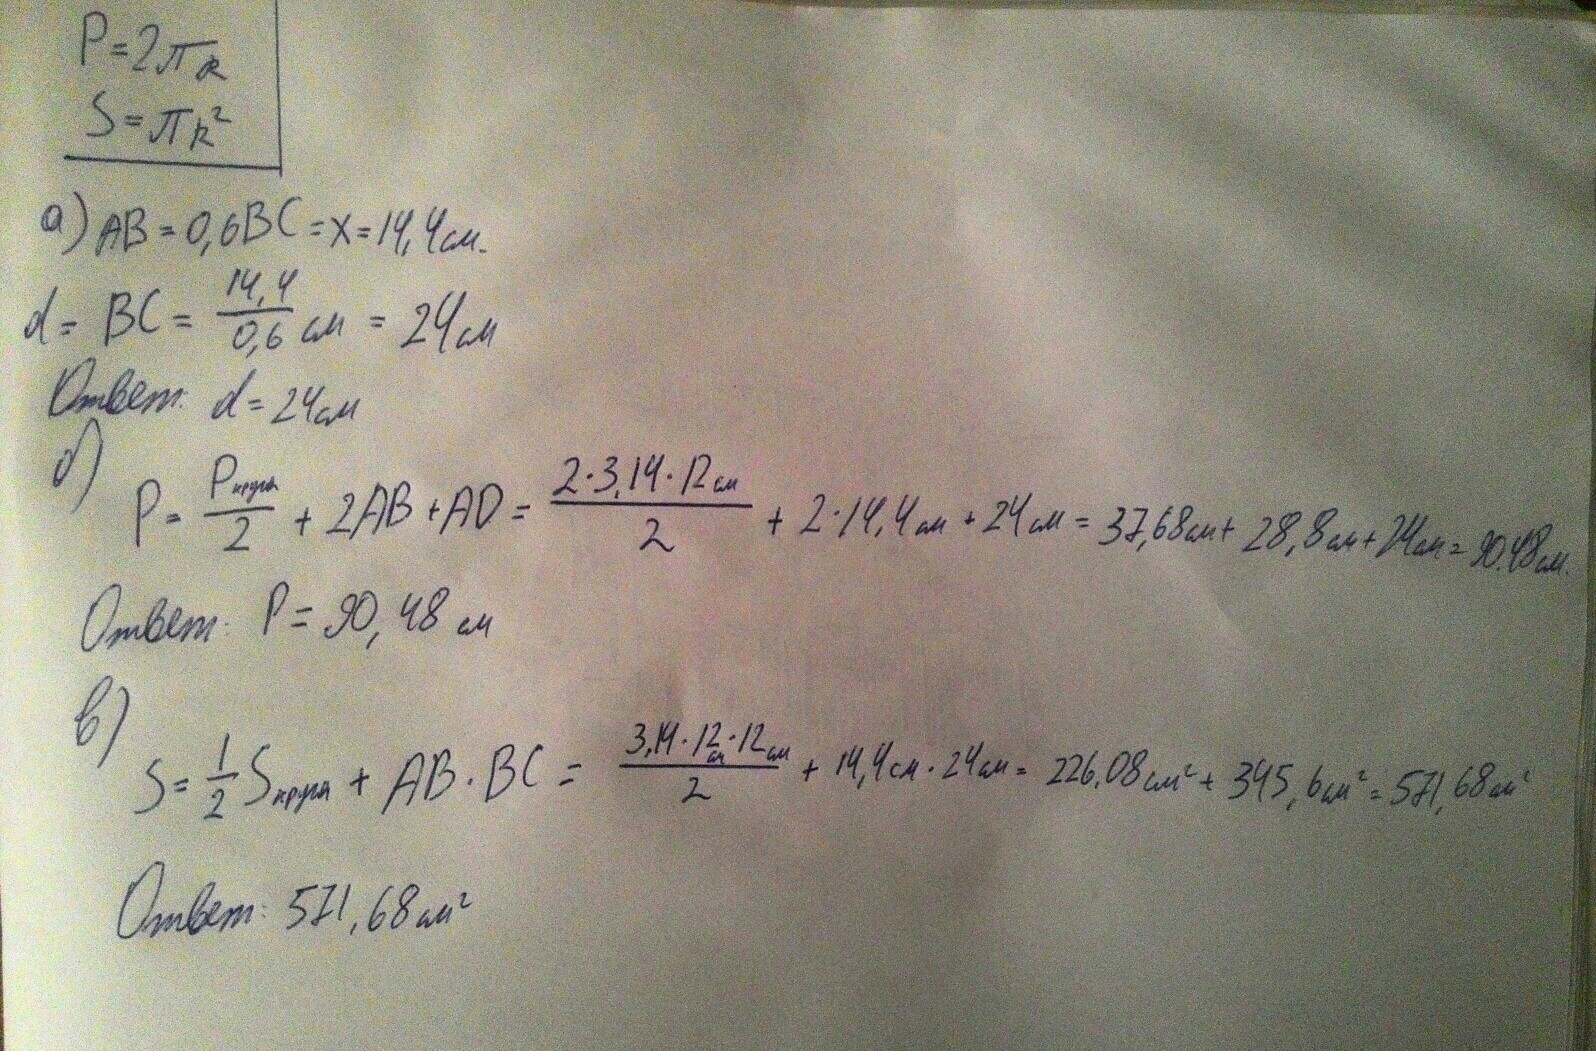 P=2πR
S=πR²
а) AB=0,6BC=x=14,4см.
d= BC= 14,4/0,6 см = 24см
Ответ: d=24см
б)
P= Pкруга/2 + 2AB+AD= 2·3,14·12см/2 + 2·14,4см+24см=37,68см+28,8см+24см=90,48см.
Ответ: P=90,48 см
в)
S= 1/2 Sкруга + AB·BC= 3,14·12см·12см/2 + 14,4см·24см= 226,08см²+345,6см²=571,68см²
Ответ: 571,68см²